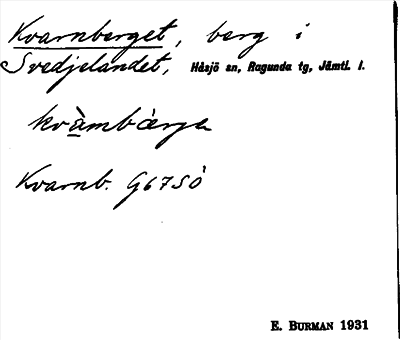 Kvarnberget, berg i
Svedjelandet, Håsjö sn, Ragunda tg, Jämtl. l.
kvàmbàrge
Kvarnb. G67SÖ
E. BURMAN 1931